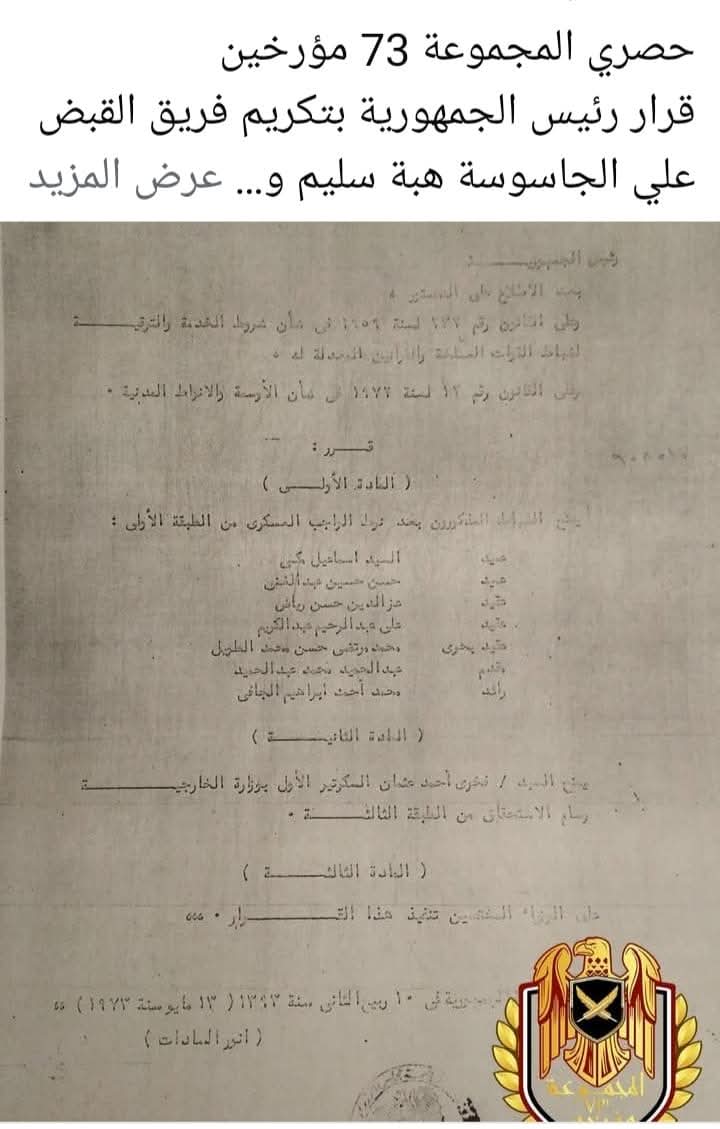 حصري المجموعة 73 مؤرخين
قرار رئيس الجمهورية بتكريم فريق القبض
علي الجاسوسة هبة سليم و... عرض المزيد
رئيس الجمهوريـــــــة :
بعد الاطلاع على الدستور ،
وعلى القانون رقم ٢٣٢ لسنة ١٩٥٩ فى شأن شروط الخدمة والترقيـــــــة
لضباط القوات المسلحة والقوانين المعدلة له ،
وعلى القانون رقم ١٢ لسنة ١٩٧٢ فى شأن الأوسمة والانواط المدنية .
قـــــرر :
( المادة الأولــــــى )
يمنح الضباط المذكورون بعد نوط الواجب العسكرى من الطبقة الأولى :
عميد السيد اسماعيل مكى
عميد حسن حسين عبد الغنى
عقيد عز الدين حسن رياض
عقيد على عبد الرحيم عبد الكريم
عقيد بحرى محمد مرتضى حسن محمد الطويل
مقدم عبد الحميد محمد عبد الحميد
رائد محمد أحمد ابراهيم الجافى
( المادة الثانيـــــــة )
يمنح السيد / فخرى أحمد عثمان السكرتير الأول بوزارة الخارجيـــــــة
وسام الاستحقاق من الطبقة الثالثـــــــة .
( المادة الثالثـــــــة )
على الوزراء المختصين تنفيذ هذا القـــــــرار .
الجمهورية فى ١٠ ربيع الثانى سنة ١٣٩٣ ( ١٣ مايو سنة ١٩٧٣ )
( أنور السادات )
المجموعة
٧٣
مؤرخين